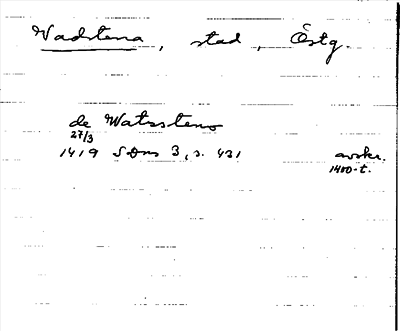 Wadstena, stad, Östg.
de Watzstens
27/3
1419 SDns 3, s. 431 avskr.
1400-t.